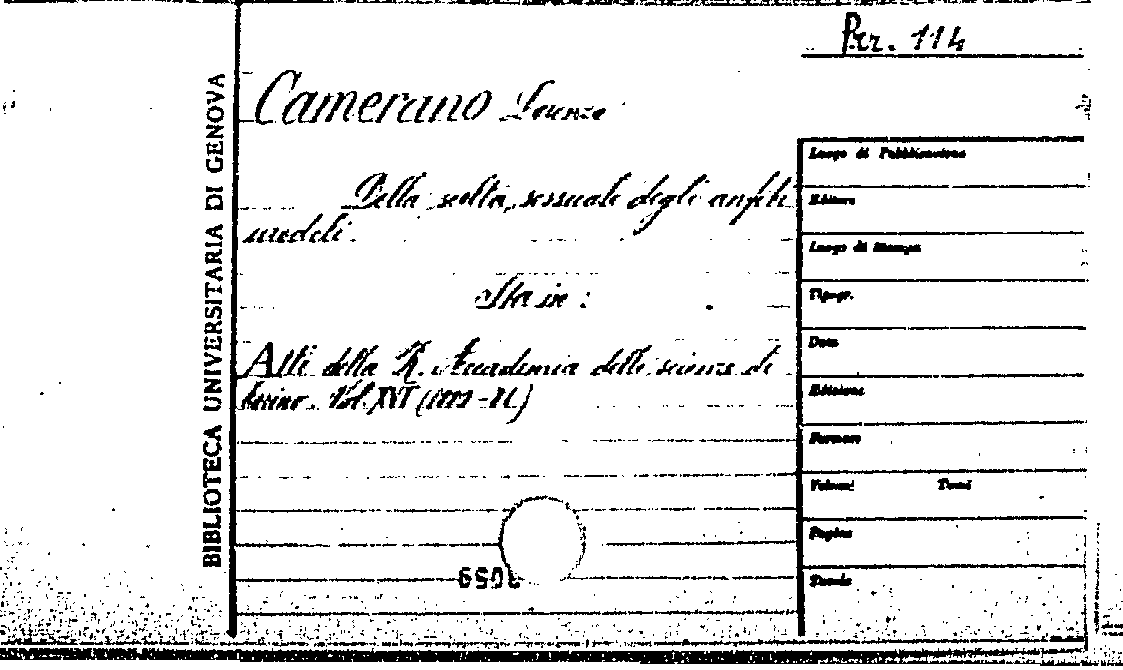 Per. 114
BIBLIOTECA UNIVERSITARIA DI GENOVA
Camerano Lorenzo
Della scelta sessuale degli anfibi
urodeli.
Sta in :
Atti della R. Accademia delle scienze di
Torino. Vol. XVI
Luogo di Pubblicazione
Editore
Luogo di Stampa
Tipogr.
Data
Edizione
Formato
Volumi Tomi
Pagine
Tavole